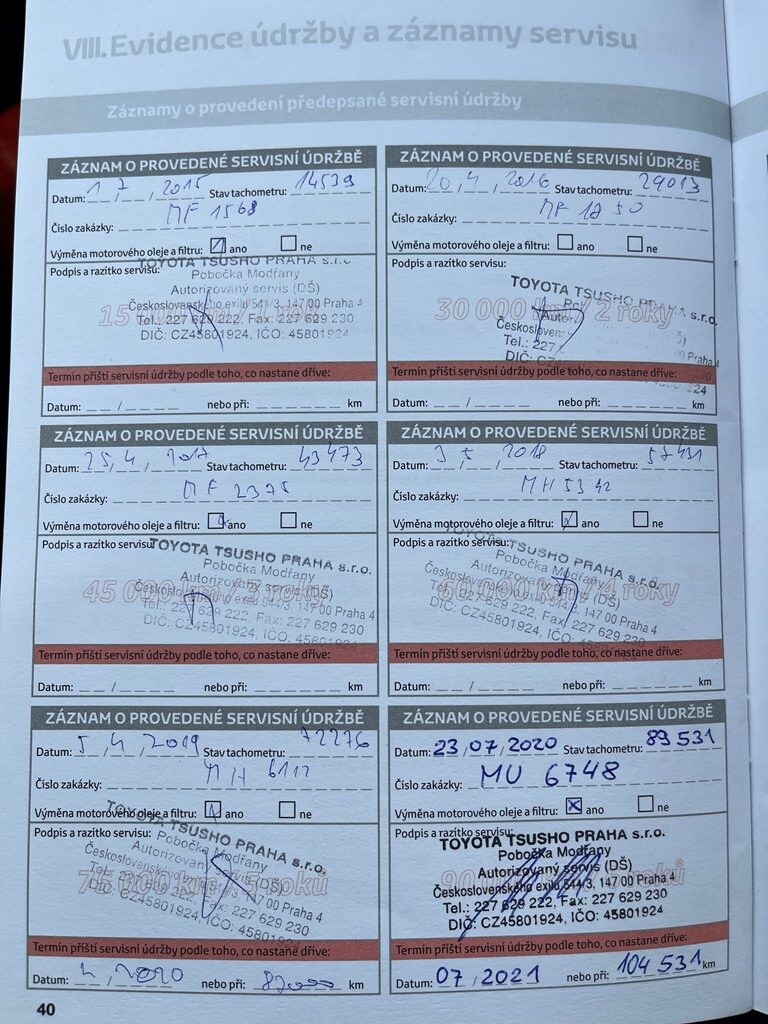 VIII.Evidence údržby a záznamy servisu
Záznamy o provedení předepsané servisní údržby
ZÁZNAM O PROVEDENÉ SERVISNÍ ÚDRŽBĚ
Datum: 1, 7, 2015 Stav tachometru: 14539
Číslo zakázky: MF 1568
Výměna motorového oleje a filtru: ano ne
Podpis a razítko servisu:
TOYOTA TSUSHO PRAHA s.r.o.
Pobočka Modřany
Autorizovaný servis (DŠ)
Československého exilu 544/3, 147 00 Praha 4
15 000 km / 1 rok
Tel.: 227 629 222, Fax: 227 629 230
DIČ: CZ45801924, IČO: 45801924
Termín příští servisní údržby podle toho, co nastane dříve:
Datum: __ / ____ nebo při: ______ km
ZÁZNAM O PROVEDENÉ SERVISNÍ ÚDRŽBĚ
Datum: 20, 4, 2016 Stav tachometru: 29013
Číslo zakázky: MF 1850
Výměna motorového oleje a filtru: ano ne
Podpis a razítko servisu:
TOYOTA TSUSHO PRAHA s.r.o.
30 000 km / 2 roky
Tel.: 227
Praha 4
Termín příští servisní údržby podle toho, co nastane dříve:
Datum: __ / ____ nebo při: ______ km
ZÁZNAM O PROVEDENÉ SERVISNÍ ÚDRŽBĚ
Datum: 25, 4, 2017 Stav tachometru: 43473
Číslo zakázky: MF 2375
Výměna motorového oleje a filtru: ano ne
Podpis a razítko servisu:
TOYOTA TSUSHO PRAHA s.r.o.
Pobočka Modřany
Autorizovaný servis (DŠ)
Československého exilu 544/3, 147 00 Praha 4
45 000 km / 3 roky
Tel.: 227 629 222, Fax: 227 629 230
DIČ: CZ45801924, IČO: 45801924
Termín příští servisní údržby podle toho, co nastane dříve:
Datum: __ / ____ nebo při: ______ km
ZÁZNAM O PROVEDENÉ SERVISNÍ ÚDRŽBĚ
Datum: 3, 5, 2018 Stav tachometru: 57431
Číslo zakázky: MH 5342
Výměna motorového oleje a filtru: ano ne
Podpis a razítko servisu:
TOYOTA TSUSHO PRAHA s.r.o.
Pobočka Modřany
Autorizovaný servis (DŠ)
Československého exilu 544/3, 147 00 Praha 4
60 000 km / 4 roky
Tel.: 227 629 222, Fax: 227 629 230
DIČ: CZ45801924, IČO: 45801924
Termín příští servisní údržby podle toho, co nastane dříve:
Datum: __ / ____ nebo při: ______ km
ZÁZNAM O PROVEDENÉ SERVISNÍ ÚDRŽBĚ
Datum: 5, 4, 2019 Stav tachometru: 72276
Číslo zakázky: MH
Výměna motorového oleje a filtru: ano ne
Podpis a razítko servisu:
TOYOTA TSUSHO PRAHA s.r.o.
Pobočka Modřany
Autorizovaný servis (DŠ)
Československého exilu 544/3, 147 00 Praha 4
75 000 km / 5 roků
Tel.: 227 629 222, Fax: 227 629 230
DIČ: CZ45801924, IČO: 45801924
Termín příští servisní údržby podle toho, co nastane dříve:
Datum: 4, 2020 nebo při: 87000 km
ZÁZNAM O PROVEDENÉ SERVISNÍ ÚDRŽBĚ
Datum: 23, 07, 2020 Stav tachometru: 89 531
Číslo zakázky: MU 6748
Výměna motorového oleje a filtru: ano ne
Podpis a razítko servisu:
TOYOTA TSUSHO PRAHA s.r.o.
Pobočka Modřany
Autorizovaný servis (DŠ)
Československého exilu 544/3, 147 00 Praha 4
Tel.: 227 629 222, Fax: 227 629 230
DIČ: CZ45801924, IČO: 45801924
Termín příští servisní údržby podle toho, co nastane dříve:
Datum: 07 / 2021 nebo při: 104 531 km
40